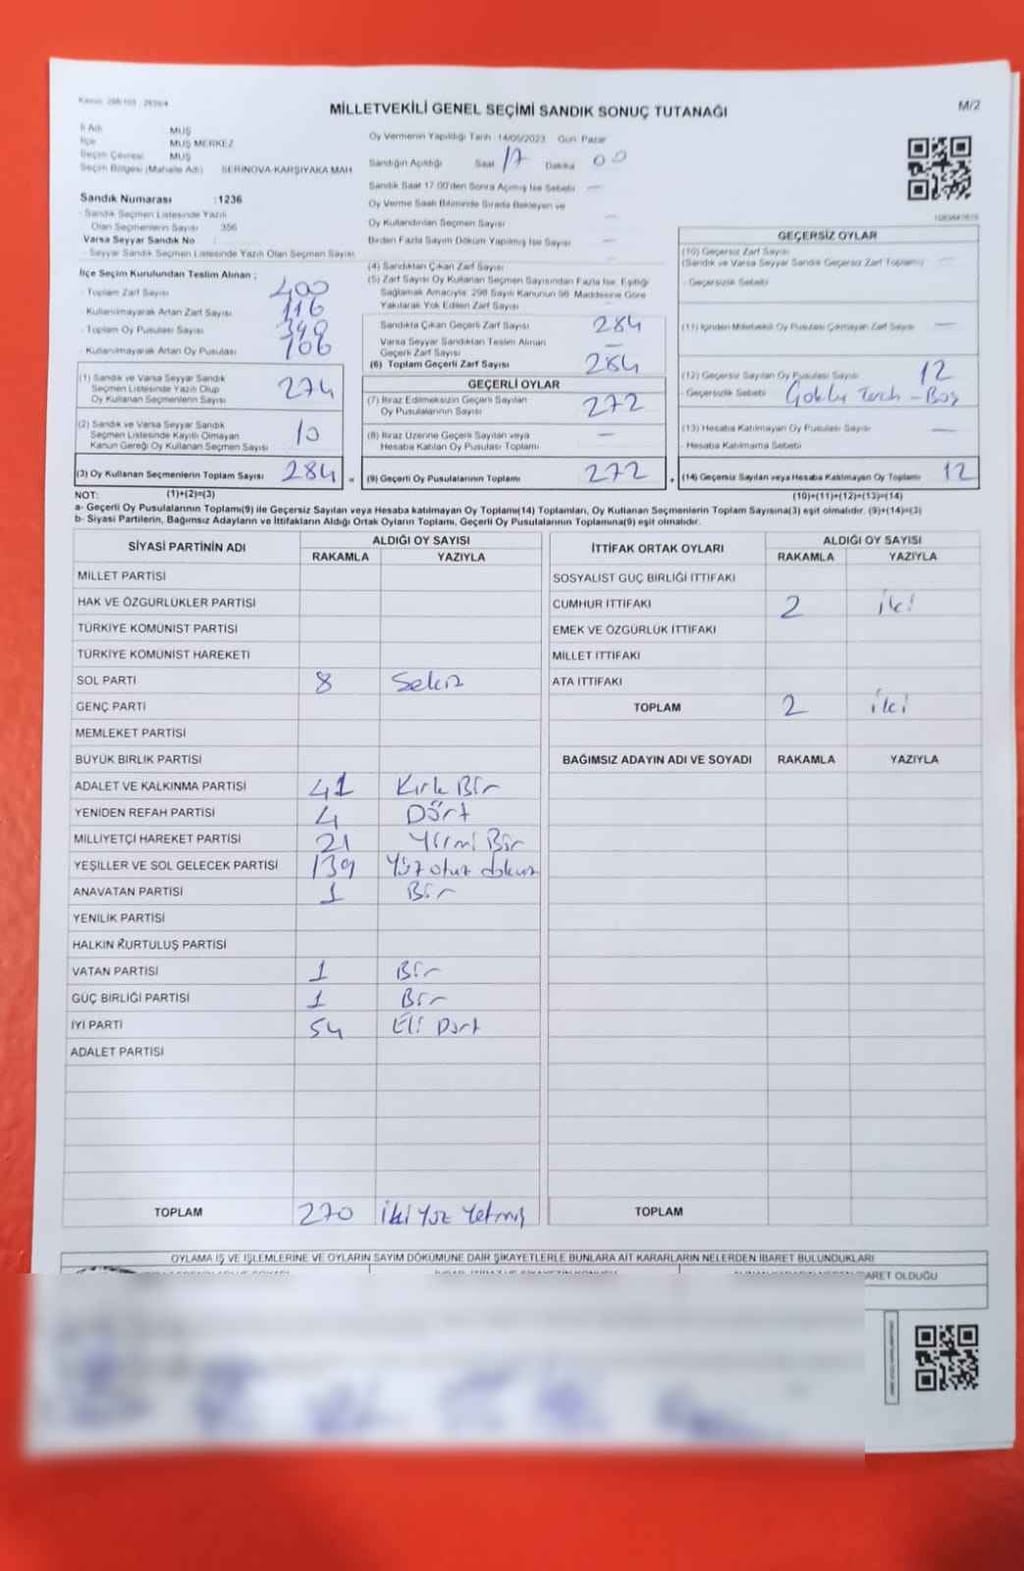 MİLLETVEKİLİ GENEL SEÇİMİ SANDIK SONUÇ TUTANAĞI
M/2
İl Adı MUŞ
İlçe MUŞ MERKEZ
Seçim Çevresi MUŞ
Seçim Bölgesi (Mahalle Adı) SERİNOVA KARŞIYAKA MAH
Sandık Numarası : 1236
Sandık Seçmen Listesinde Yazılı
Olan Seçmenlerin Sayısı 356
Varsa Seyyar Sandık No
Seyyar Sandık Seçmen Listesinde Yazılı Olan Seçmen Sayısı
İlçe Seçim Kurulundan Teslim Alınan :
Toplam Zarf Sayısı 400
Kullanılmayarak Artan Zarf Sayısı 116
Toplam Oy Pusulası Sayısı
Kullanılmayarak Artan Oy Pusulası 106
(1) Sandık ve Varsa Seyyar Sandık
Seçmen Listesinde Yazılı Olup
Oy Kullanan Seçmenlerin Sayısı 274
(2) Sandık ve Varsa Seyyar Sandık
Seçmen Listesinde Kayıtlı Olmayan
Kanun Gereği Oy Kullanan Seçmen Sayısı 10
(3) Oy Kullanan Seçmenlerin Toplam Sayısı 284
Oy Vermenin Yapıldığı Tarih : 14/05/2023 Gün Pazar
Sandığın Açıldığı Saat 17 Dakika 00
Sandık Saat 17.00'den Sonra Açılmış İse Sebebi —
Oy Verme Saati Bitiminde Sırada Bekleyen ve
Oy Kullandırılan Seçmen Sayısı —
Birden Fazla Sayım Döküm Yapılmış İse Sayısı —
(4) Sandıktan Çıkan Zarf Sayısı
(5) Zarf Sayısı Oy Kullanan Seçmen Sayısından Fazla İse, Eşitliği
Sağlamak Amacıyla, 298 Sayılı Kanunun 98. Maddesine Göre
Yakılarak Yok Edilen Zarf Sayısı
Sandıkta Çıkan Geçerli Zarf Sayısı 284
Varsa Seyyar Sandıktan Teslim Alınan
Geçerli Zarf Sayısı —
(6) Toplam Geçerli Zarf Sayısı 284
GEÇERLİ OYLAR
(7) İtiraz Edilmeksizin Geçerli Sayılan
Oy Pusulalarının Sayısı 272
(8) İtiraz Üzerine Geçerli Sayılan veya
Hesaba Katılan Oy Pusulası Toplamı —
(9) Geçerli Oy Pusulalarının Toplamı 272
GEÇERSİZ OYLAR
(10) Geçersiz Zarf Sayısı
(Sandık ve Varsa Seyyar Sandık Geçersiz Zarf Toplamı) —
Geçersizlik Sebebi
(11) İçinden Milletvekili Oy Pusulası Çıkmayan Zarf Sayısı —
(12) Geçersiz Sayılan Oy Pusulası Sayısı 12
Geçersizlik Sebebi - Boş
(13) Hesaba Katılmayan Oy Pusulası Sayısı —
Hesaba Katılmama Sebebi
(14) Geçersiz Sayılan veya Hesaba Katılmayan Oy Toplamı 12
NOT: (1)+(2)=(3) (10)+(11)+(12)+(13)=(14)
a- Geçerli Oy Pusulalarının Toplamı(9) ile Geçersiz Sayılan veya Hesaba katılmayan Oy Toplamı(14) Toplamları, Oy Kullanan Seçmenlerin Toplam Sayısına(3) eşit olmalıdır. (9)+(14)=(3)
b- Siyasi Partilerin, Bağımsız Adayların ve İttifakların Aldığı Ortak Oyların Toplamı, Geçerli Oy Pusulalarının Toplamına(9) eşit olmalıdır.
SİYASİ PARTİNİN ADI ALDIĞI OY SAYISI
RAKAMLA YAZIYLA
MİLLET PARTİSİ
HAK VE ÖZGÜRLÜKLER PARTİSİ
TÜRKİYE KOMÜNİST PARTİSİ
TÜRKİYE KOMÜNİST HAREKETİ
SOL PARTİ 8 Sekiz
GENÇ PARTİ
MEMLEKET PARTİSİ
BÜYÜK BİRLİK PARTİSİ
ADALET VE KALKINMA PARTİSİ 41 Kırk Bir
YENİDEN REFAH PARTİSİ 4 Dört
MİLLİYETÇİ HAREKET PARTİSİ 21 Yirmi Bir
YEŞİLLER VE SOL GELECEK PARTİSİ 139 Yüz otuz dokuz
ANAVATAN PARTİSİ 1 Bir
YENİLİK PARTİSİ
HALKIN KURTULUŞ PARTİSİ
VATAN PARTİSİ 1 Bir
GÜÇ BİRLİĞİ PARTİSİ 1 Bir
İYİ PARTİ 54 Eli Dört
ADALET PARTİSİ
TOPLAM 270 İki Yüz Yetmiş
İTTİFAK ORTAK OYLARI ALDIĞI OY SAYISI
RAKAMLA YAZIYLA
SOSYALİST GÜÇ BİRLİĞİ İTTİFAKI
CUMHUR İTTİFAKI 2 iki
EMEK VE ÖZGÜRLÜK İTTİFAKI
MİLLET İTTİFAKI
ATA İTTİFAKI
TOPLAM 2 iki
BAĞIMSIZ ADAYIN ADI VE SOYADI RAKAMLA YAZIYLA
TOPLAM
OYLAMA İŞ VE İŞLEMLERİNE VE OYLARIN SAYIM DÖKÜMÜNE DAİR ŞİKAYETLERLE BUNLARA AİT KARARLARIN NELERDEN İBARET BULUNDUKLARI
ARET OLDUĞU